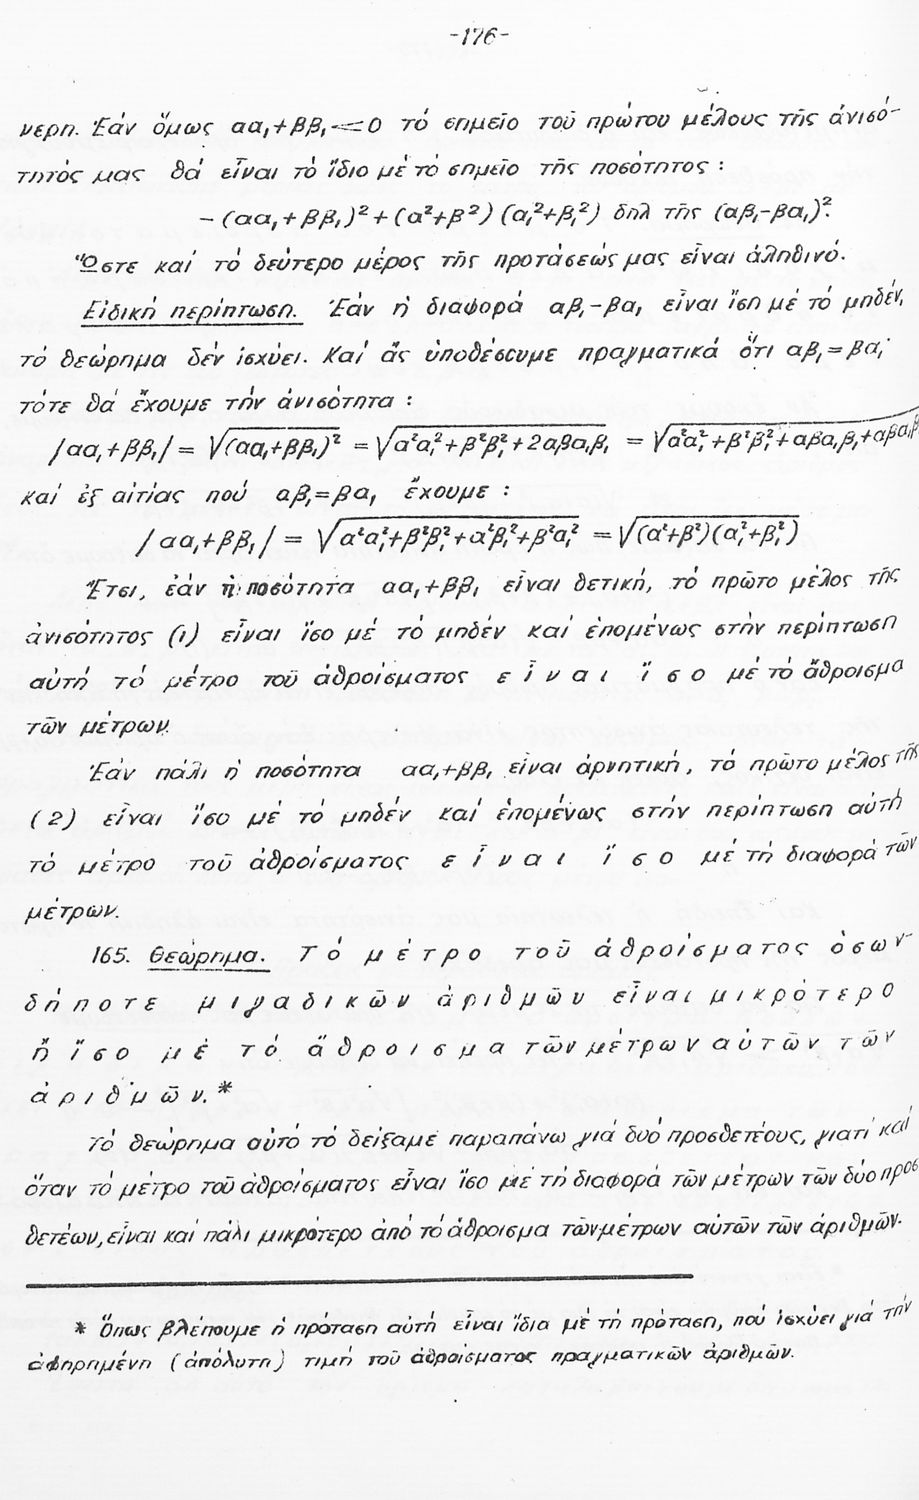 -176-
νερη. Ἐάν ὅμως αα₁+ββ₁ <0 τό σημεῖο τοῦ πρώτου μέλους τῆς ἀνισό-
τητός μας θά εἶναι τό ἴδιο μέ τό σημεῖο τῆς ποσότητος :
-(αα₁+ββ₁)²+(α²+β²)(α₁²+β₁²) δηλ τῆς (αβ₁-βα₁)².
Ὥστε καί τό δεύτερο μέρος τῆς προτάσεώς μας εἶναι ἀληθινό.
Εἰδική περίπτωση. Ἐάν ἡ διαφορά αβ₁-βα₁ εἶναι ἴση μέ τό μηδέν,
τό θεώρημα δέν ἰσχύει. Καί ἄς ὑποθέσουμε πραγματικά ὅτι αβ₁=βα₁·
τότε θά ἔχουμε τήν ἀνισότητα :
/αα₁+ββ₁/ = √(αα₁+ββ₁)² = √α²α₁²+β²β₁²+2αβα₁β₁ = √α²α₁²+β²β₁²+αβα₁β₁+αβα₁β₁
καί ἐξ αἰτίας πού αβ₁=βα₁ ἔχουμε :
/αα₁+ββ₁/ = √α²α₁²+β²β₁²+α²β₁²+β²α₁² = √(α²+β²)(α₁²+β₁²)
Ἔτσι, ἐάν ἡ ποσότητα αα₁+ββ₁ εἶναι θετική, τό πρῶτο μέλος τῆς
ἀνισότητος (1) εἶναι ἴσο μέ τό μηδέν καί ἑπομένως στήν περίπτωση
αὐτή τό μέτρο τοῦ ἀθροίσματος εἶναι ἴσο μέ τό ἄθροισμα
τῶν μέτρων.
Ἐάν πάλι ἡ ποσότητα αα₁+ββ₁ εἶναι ἀρνητική, τό πρῶτο μέλος τῆς
(2) εἶναι ἴσο μέ τό μηδέν καί ἑπομένως στήν περίπτωση αὐτή
τό μέτρο τοῦ ἀθροίσματος εἶναι ἴσο μέ τή διαφορά τῶν
μέτρων.
165. Θεώρημα. Τό μέτρο τοῦ ἀθροίσματος ὁσων-
δήποτε μιγαδικῶν ἀριθμῶν εἶναι μικρότερο
ἤ ἴσο μέ τό ἄθροισμα τῶν μέτρων αὐτῶν τῶν
ἀριθμῶν.*
Τό θεώρημα αὐτό τό δείξαμε παραπάνω γιά δυό προσθετέους, γιατί καί
ὅταν τό μέτρο τοῦ ἀθροίσματος εἶναι ἴσο μέ τή διαφορά τῶν μέτρων τῶν δύο προσ
θετέων, εἶναι καί πάλι μικρότερο ἀπό τό ἄθροισμα τῶν μέτρων αὐτῶν τῶν ἀριθμῶν.
* Ὅπως βλέπουμε ἡ πρόταση αὐτή εἶναι ἴδια μέ τή πρόταση, πού ἰσχύει γιά τήν
ἀφηρημένη (ἀπόλυτη) τιμή τοῦ ἀθροίσματος πραγματικῶν ἀριθμῶν.